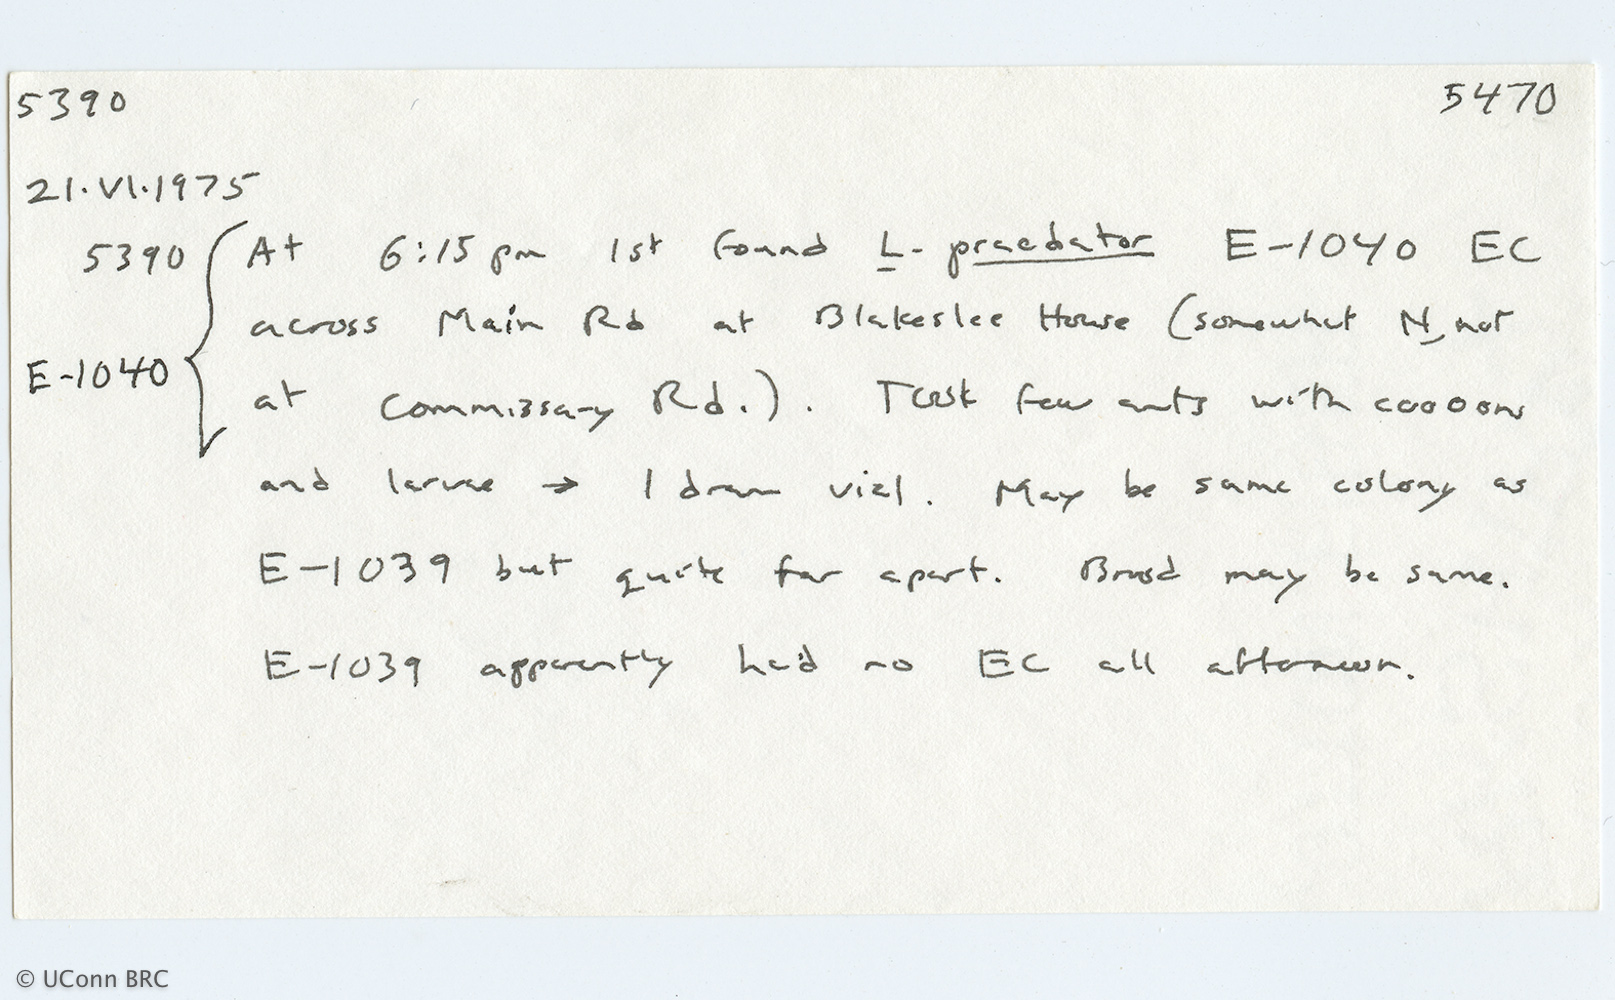 5390 5470
21.VI.1975
5390 At 6:15 pm 1st found L. praedator E-1040 EC
across Main Rd at Blakeslee House (somewhat N, not
E-1040 at Commissary Rd.). Took few ants with cocoons
and larvae → 1 dram vial. May be same colony as
E-1039 but quite far apart. Brood may be same.
E-1039 apparently had no EC all afternoon.
© UConn BRC